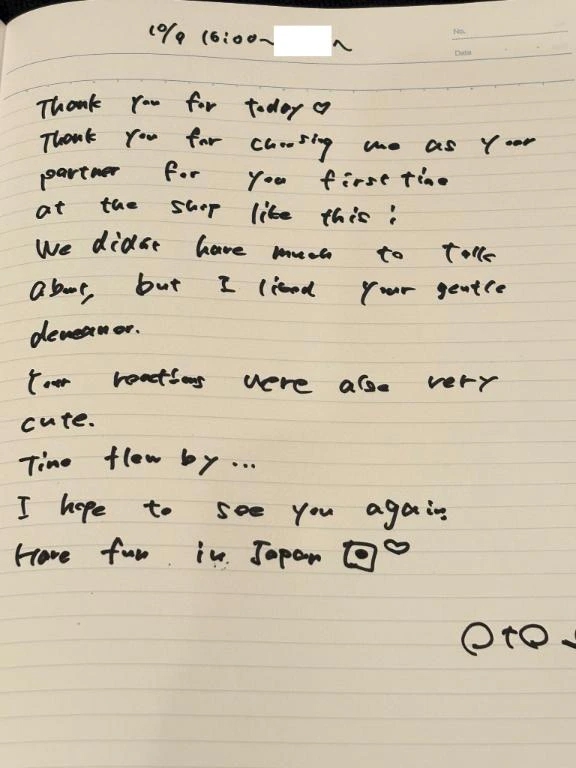 10/9 16:00~ ~
No.
Date
Thank you for today ♡
Thank you for choosing me as your
partner for you first time
at the shop like this!
We didn't have much to talk
about, but I liked your gentle
demeanor.
Your reactions were also very
cute.
Time flew by...
I hope to see you again
Have fun in Japan 🇯🇵♡